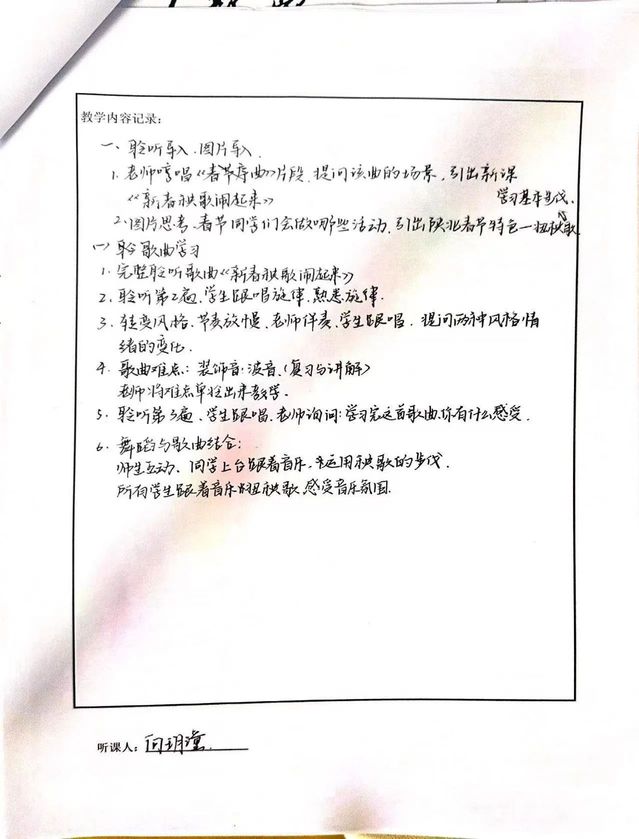 教学内容记录:
一、聆听导入、图片导入
1. 老师哼唱《春节序曲》片段,提问该曲的场景,引出新课
《新春秧歌闹起来》
学习基本步伐
2. 图片思考、春节同学们会做哪些活动,引出陕北春节特色—扭秧歌
歌曲学习
1. 完整聆听歌曲《新春秧歌闹起来》
2. 聆听第2遍,学生跟唱旋律,熟悉旋律.
3. 转变风格、节奏放慢、老师伴奏、学生跟唱、提问两种风格情
绪的变化.
4. 歌曲难点:装饰音·波音、(复习与讲解)
老师将难点单拎出来教学.
5. 聆听第3遍、学生跟唱、老师询问:学习完这首歌曲,你有什么感受.
6. 舞蹈与歌曲结合:
师生互动、同学上台跟着音乐、运用秧歌的步伐.
所有学生跟着音乐扭秧歌,感受音乐氛围.
听课人:向玥